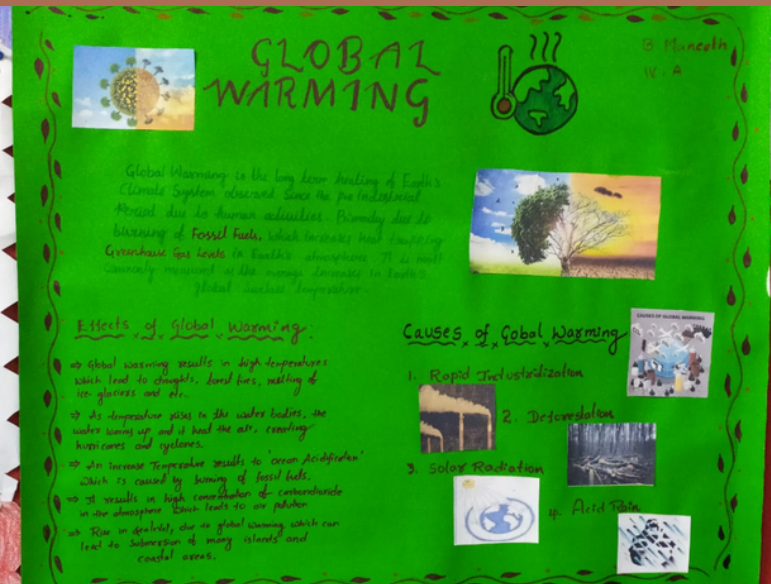 GLOBAL
WARMING
B Muneeth
IV - A
Global Warming is the long term heating of Earth's
Climate System observed Since the pre-industrial
Period due to human activities. Primarily due to
burning of Fossil Fuels, which increases heat trapping
Greenhouse Gas Levels in Earth's atmosphere. It is most
commonly measured as the average increases in Earth's
global surface temperature.
Effects of Global Warming:
⇒ Global warming results in high temperatures
which lead to droughts, forest fires, melting of
ice-glaciers and etc.
⇒ As temperature rises in the water bodies, the
water warms up and it heat the air, creating
hurricanes and cyclones.
⇒ An increase Temperature results to 'ocean Acidification'
which is caused by burning of fossil fuels.
⇒ It results in high concentration of carbondioxide
in the atmosphere which leads to air pollution
⇒ Rise in sealevel, due to global warming which can
lead to submersion of many islands and
coastal areas.
Causes of Gobal Warming
CAUSES OF GLOBAL WARMING
1. Rapid Industridization
2. Deforestation
3. Solar Radiation
4. Acid Rain